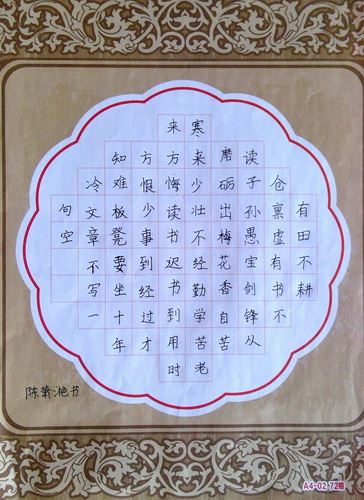 有田不耕
仓禀虚有书不
读子孙愚宝剑锋从
磨砺出梅花香自苦
寒来少壮不经勤学苦老
来方悔读书迟书到用时
方恨少事到经过才
知难板凳要坐十年
冷文章不写一
句空
陈艳书
A4-02 72格